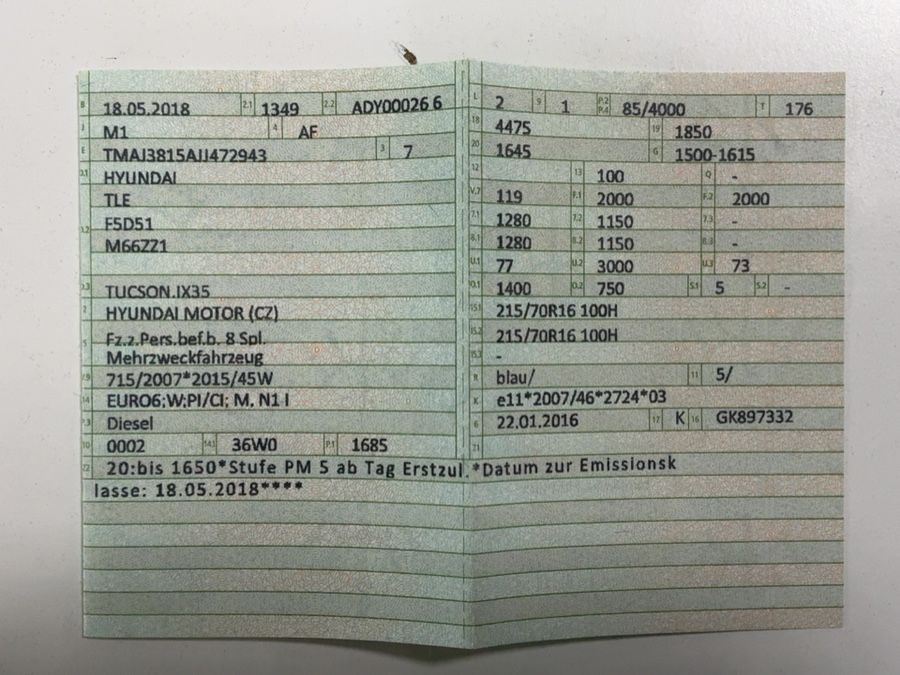 B 18.05.2018 2.1 1349 2.2 ADY00026 6
J M1 4 AF
E TMAJ3815AJJ472943 3 7
D.1 HYUNDAI
TLE
D.2 F5D51
M66ZZ1
D.3 TUCSON.IX35
2 HYUNDAI MOTOR (CZ)
5 Fz.z.Pers.bef.b. 8 Spl.
Mehrzweckfahrzeug
V.9 715/2007*2015/45W
14 EURO6;W;PI/CI; M, N1 I
P.3 Diesel
10 0002 14.1 36W0 P.1 1685
22 20:bis 1650*Stufe PM 5 ab Tag Erstzul.*Datum zur Emissionsk
lasse: 18.05.2018****
L 2 9 1 P.2 P.4 85/4000 T 176
18 4475 19 1850
20 1645 G 1500-1615
12 13 100 Q -
V.7 119 F.1 2000 F.2 2000
7.1 1280 7.2 1150 7.3 -
8.1 1280 8.2 1150 8.3 -
U.1 77 U.2 3000 U.3 73
O.1 1400 O.2 750 S.1 5 S.2 -
15.1 215/70R16 100H
15.2 215/70R16 100H
15.3 -
R blau/ 11 5/
K e11*2007/46*2724*03
6 22.01.2016 17 K 16 GK897332
21